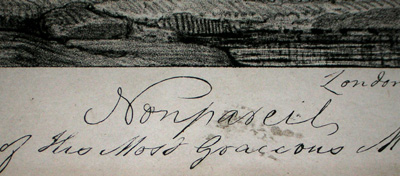 London
Nonpareil
of His Most Gracious M